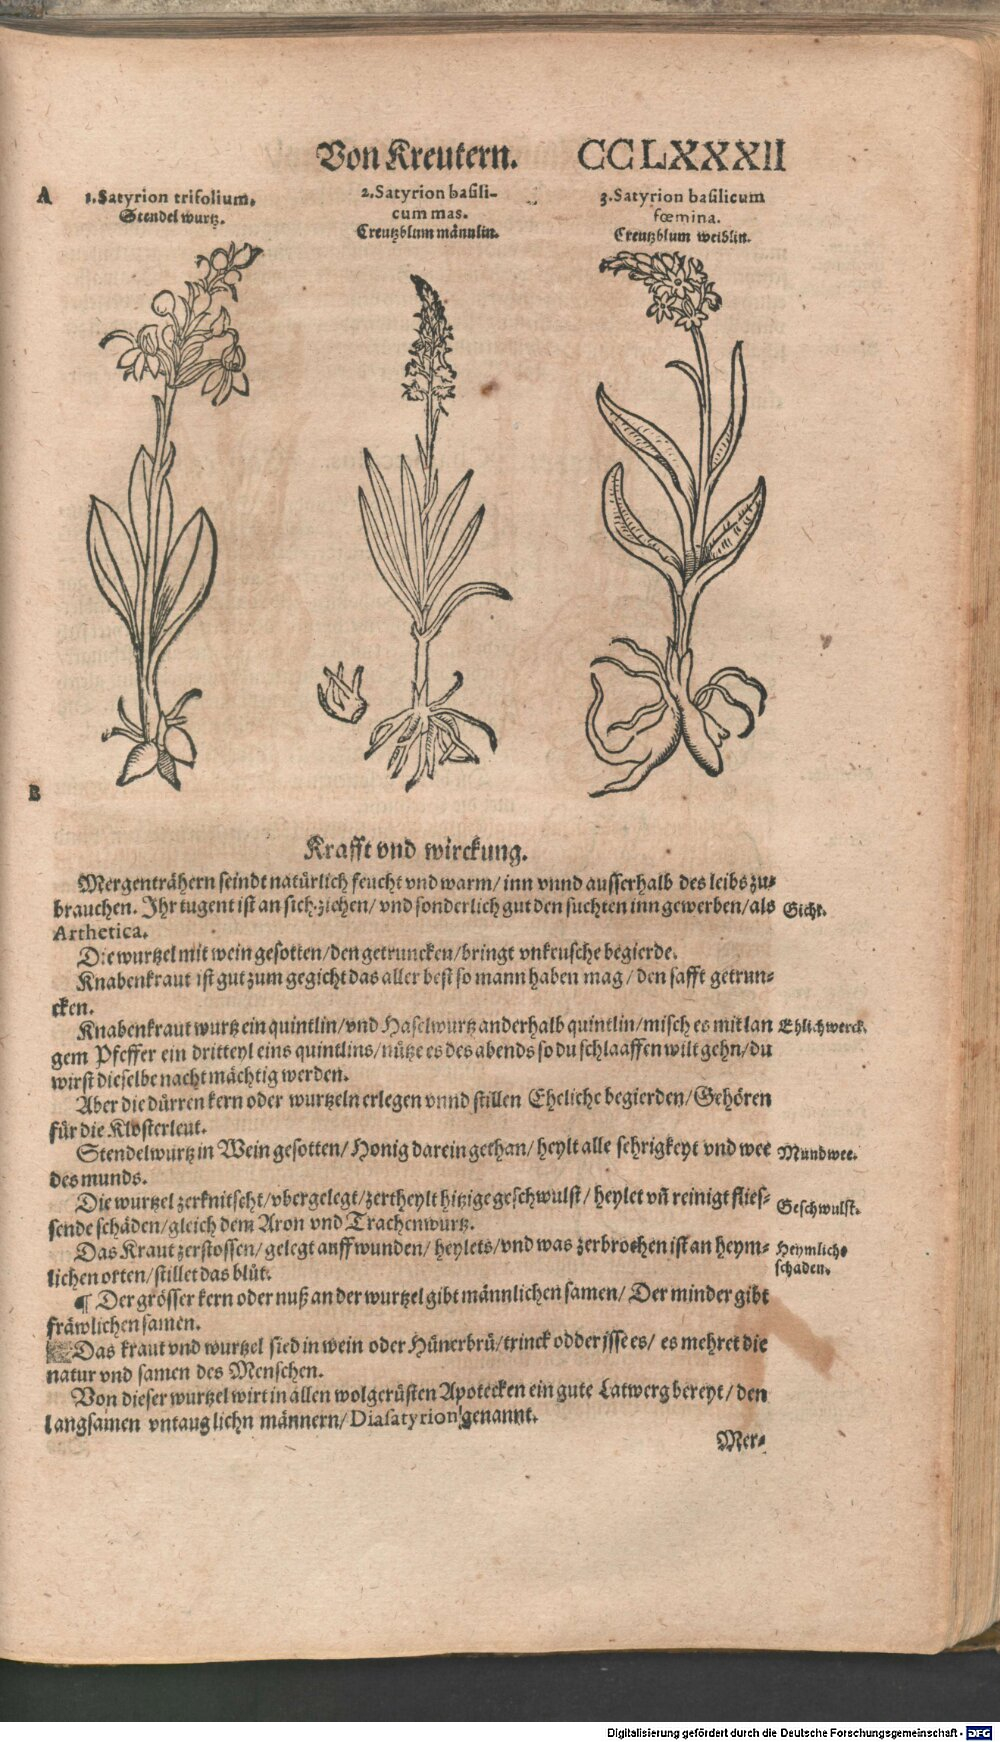 Von Kreutern. CCLXXXII
A
1. Satyrion trifolium.
Stendelwurtz.
2. Satyrion basili-
cum mas.
Creutzblum männlin.
3. Satyrion basilicum
fœmina.
Creutzblum weiblin.
B
Krafft vnd wirckung.
Mergenträhern seindt natürlich feucht vnd warm/ inn vnnd ausserhalb des leibs zu-
brauchen. Ihr tugent ist an sich ziehen/ vnd sonderlich gut den suchten inn gewerben/ als
Gicht.
Arthetica.
Die wurtzel mit wein gesotten/ den getruncken/ bringt vnkeusche begierde.
Knabenkraut ist gut zum gegicht das aller best so mann haben mag/ den safft getrun-
cken.
Knabenkraut wurtz ein quintlin/ vnd Haselwurtz anderhalb quintlin/ misch es mit lan
Ehlich werck.
gem Pfeffer ein dritteyl eins quintlins/ nütze es des abends so du schlaaffen wilt gehn/ du
wirst dieselbe nacht mächtig werden.
Aber die dürren kern oder wurtzeln erlegen vnnd stillen Eheliche begierden/ Gehören
für die Klosterleut.
Stendelwurtz in Wein gesotten/ Honig darein gethan/ heylt alle sehrigkeyt vnd wee
Mundwee.
des munds.
Die wurtzel zerknitscht/ vbergelegt/ zertheylt hitzige geschwulst/ heylet vn̄ reinigt flies-
Geschwulst.
sende schäden/ gleich dem Aron vnd Trachenwurtz.
Das Kraut zerstossen/ gelegt auff wunden/ heylets/ vnd was zerbrochen ist an heym-
Heymliche
schaden.
lichen orten/ stillet das blüt.
¶ Der grösser kern oder nuß an der wurtzel gibt männlichen samen/ Der minder gibt
fräwlichen samen.
Das kraut vnd wurtzel sied in wein oder Hünerbrü/ trinck odder jsse es/ es mehret die
natur vnd samen des Menschen.
Von dieser wurtzel wirt in allen wolgerüsten Apotecken ein gute Latwerg bereyt/ den
langsamen vntauglichn männern/ Diasatyrion genannt.
Mer-
Digitalisierung gefördert durch die Deutsche Forschungsgemeinschaft - DFG